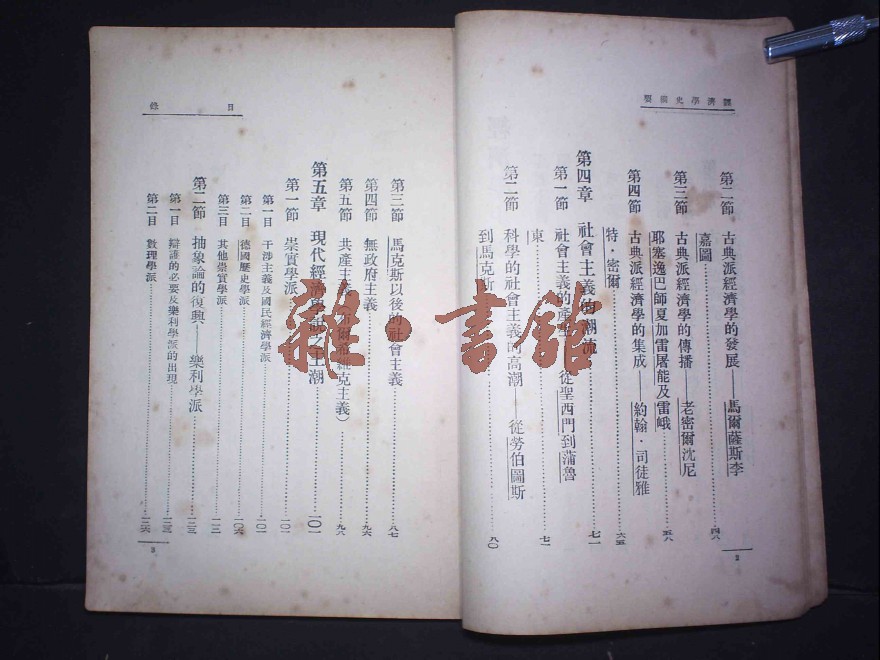 經濟學史綱要
第二節 古典派經濟學的發展——馬爾薩斯李
嘉圖 四八
第三節 古典派經濟學的傳播——老密爾沈尼
耶塞逸巴師夏加雷屠能及雷峨 五八
第四節 古典派經濟學的集成——約翰·司徒雅
特·密爾 六五
第四章 社會主義的潮流 七一
第一節 社會主義的產生——從聖西門到蒲魯
東 七一
第二節 科學的社會主義的高潮——從勞伯圖斯
到馬克斯 八〇
2
目錄
第三節 馬克斯以後的社會主義 八七
第四節 無政府主義 九六
第五節 共產主義(布爾希維克主義) 九八
第五章 現代經濟學說之主潮 一〇一
第一節 崇實學派 一〇一
第一目 干涉主義及國民經濟學派 一〇一
第二目 德國歷史學派 一〇六
第三目 其他崇實學派 一一二
第二節 抽象論的復興——樂利學派 一二三
第一目 辯護的必要及樂利學派的出現 一二三
第二目 數理學派 一二六
3
雜·書館